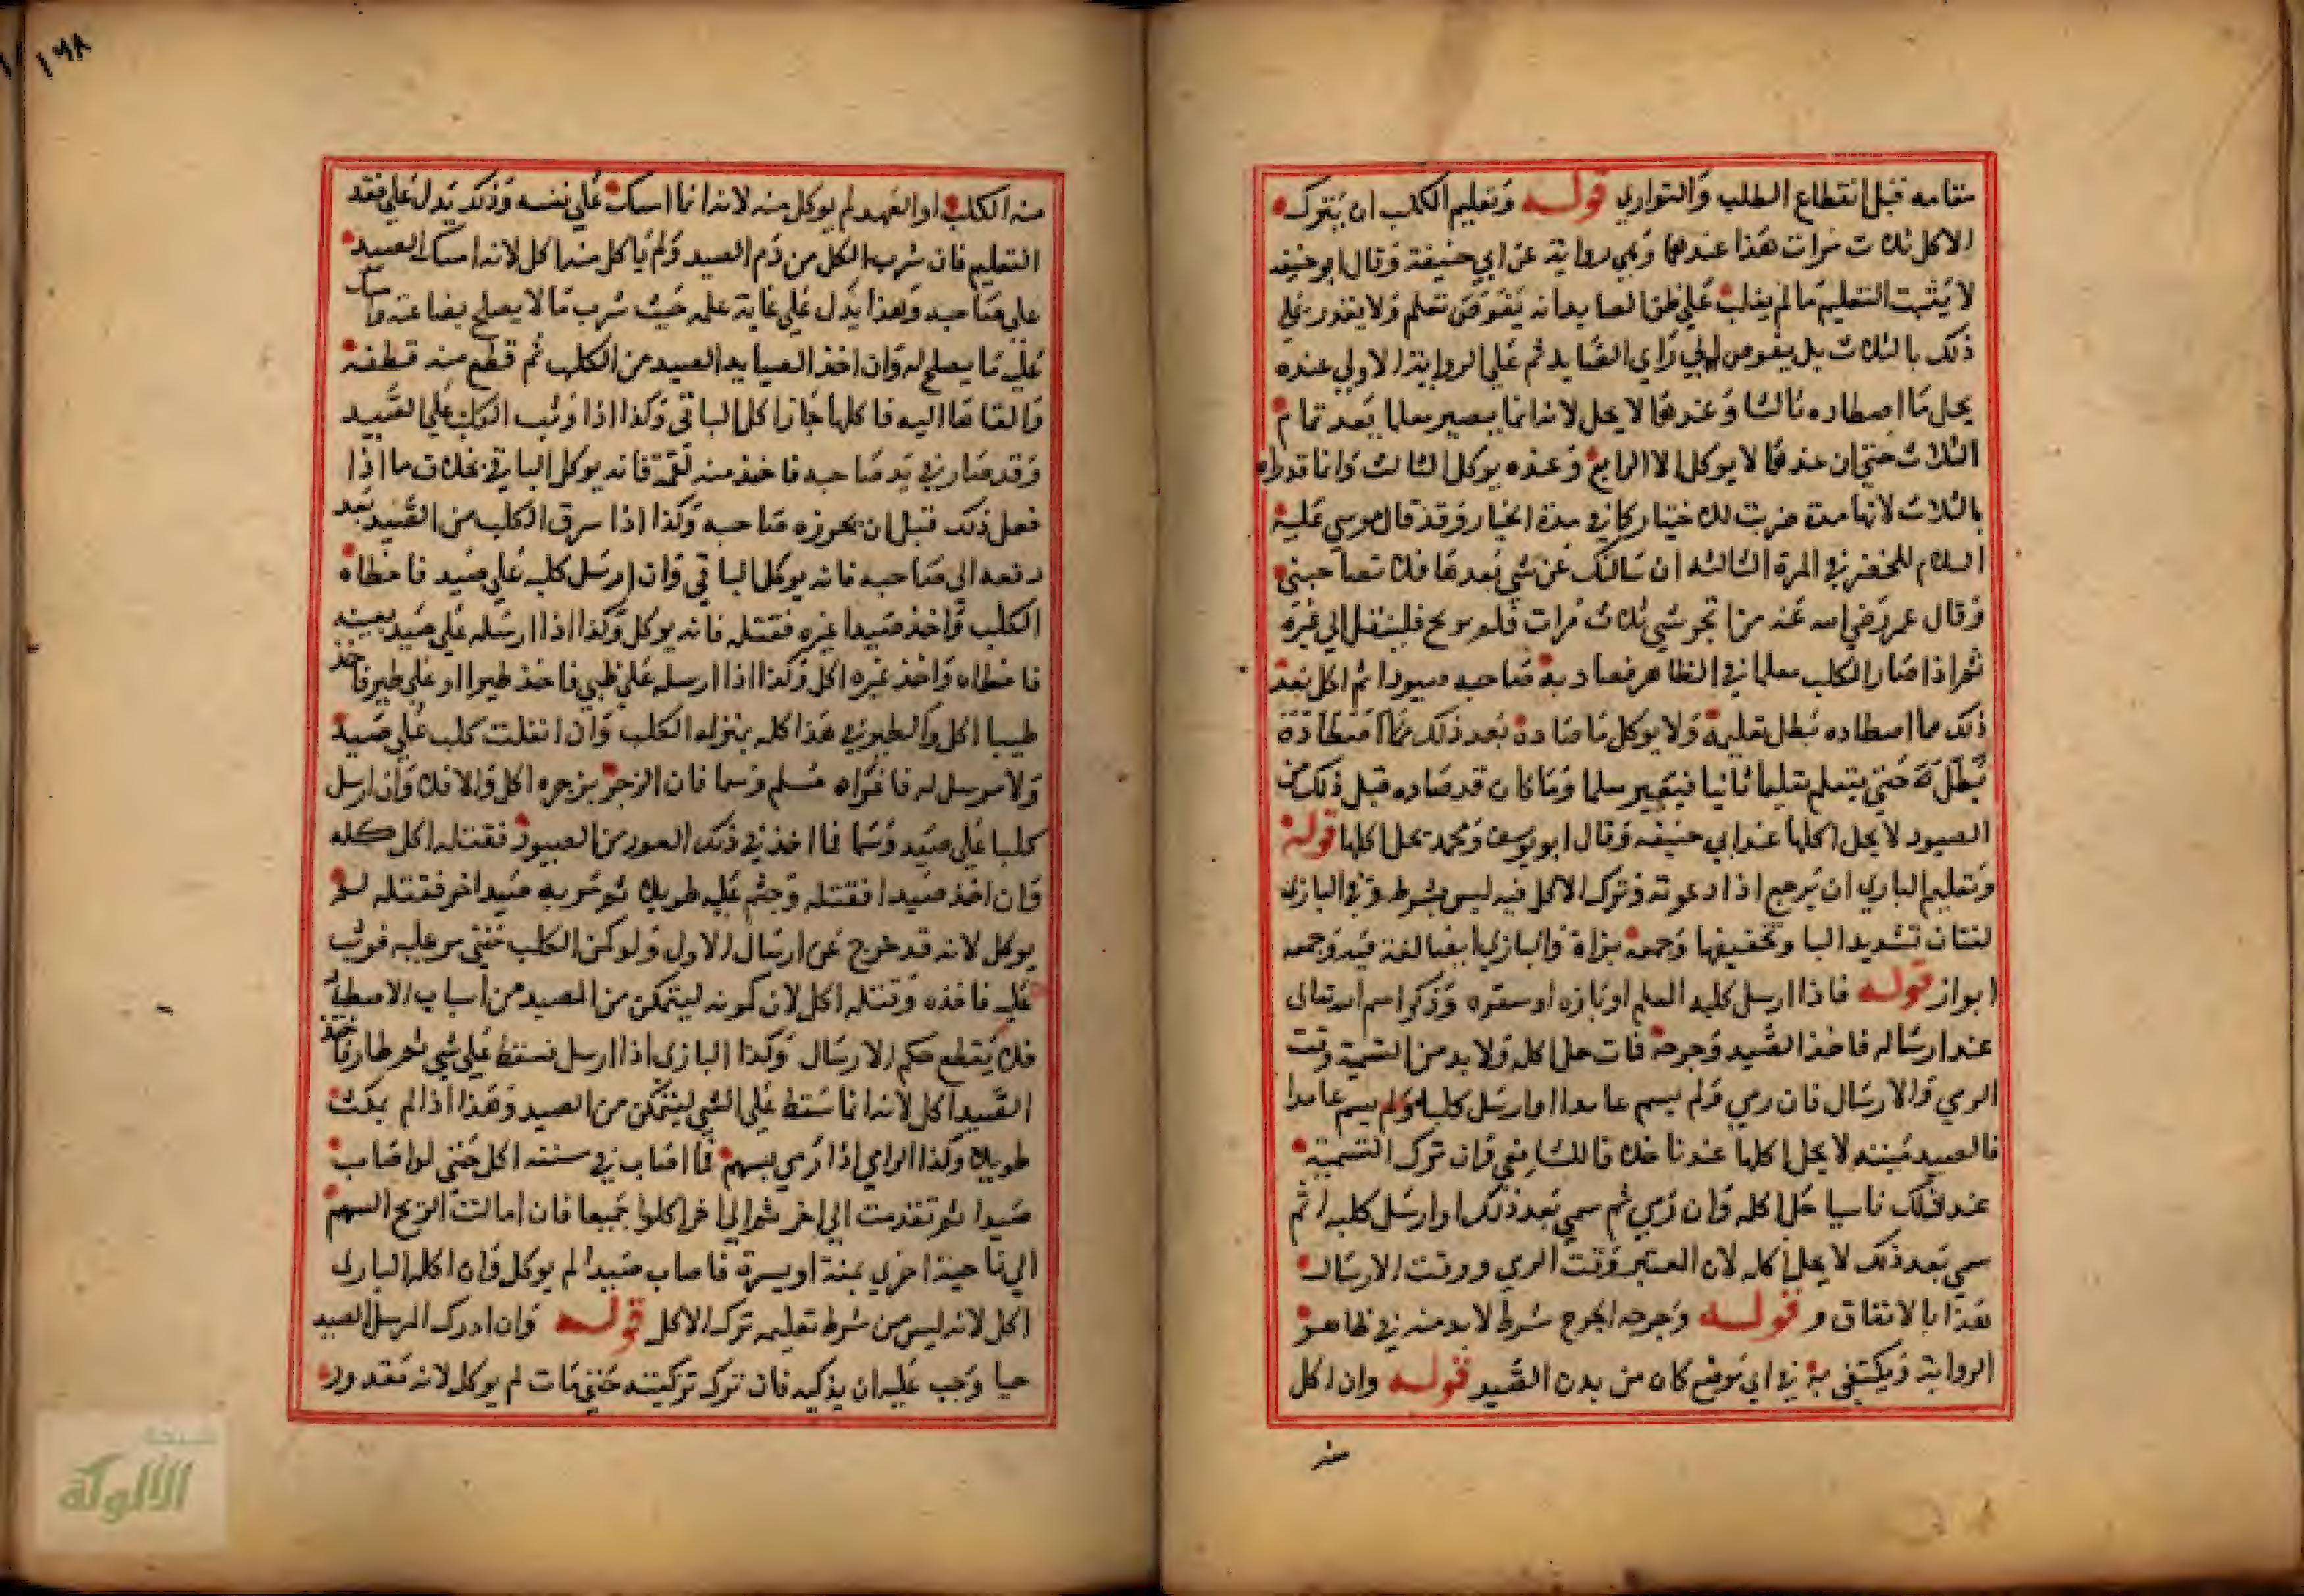 مقامه قبل انقطاع الطلب والتواري قوله وتعليم الكلب ان يترك
الاكل ثلاث مرات هذا عندهما وهي رواية عن ابي حنيفة وقال ابو حنيفه
لا يثبت التعليم مالم يغلب علي ظن الصايد انه قد تعلم ولا يقدر في
ذلك بالثلاث بل يفوض الي راي الصايد ثم علي الرواية الاولي عنده
يحل ما اصطاده ثالثا وعندهما لا يحل لانه انما يصير معلما بعد تمام
الثلاث حتي ان عندهما لا يوكل الا الرابع وعنده يوكل الثالث وانما قدراه
بالثلاث لانها مدة ضربت للاختيار كما في مدة الخيار وقد قال موسي عليه
السلام للخضر في المرة الثالثه ان سالتك عن شي بعدها فلا تصاحبني
وقال عمر رضي الله عنه من اتجر شي ثلاث مرات فلم يربح فلينتقل الي غيره
ثم اذا صار الكلب معلما في الظاهر فصاد به صاحبه صيودا ثم اكل بعد
ذلك مما اصطاده بطل تعليمه ولا يوكل ما صاده بعد ذلك مما اصطاده
قبل حتي يتعلم تعليما ثانيا فيصير معلما وما كان قد صاده قبل ذلك من
الصيود لا يحل اكلها عند ابي حنيفه وقال ابو يوسف ومحمد يحل اكلها قوله
وتعليم البازي ان يرجع اذا دعوته وترك الاكل فيه ليس بشرط وفي البازي
لغتان تشديد اليا وتخفيفها وجمعه بزاة والباز ايضا لغة فيه وجمعه
ابواز قوله فاذا ارسل كلبه المعلم او بازه او صقره وذكر اسم الله تعالى
عند ارساله فاخذ الصيد وجرحه فمات حل اكله ولا بد من التسمية وقت
الرمي والارسال فان رمي ولم يسم عامدا او ارسل كلبه ولم يسم عامدا
فالصيد ميتة لا يحل اكلها عندنا خلافا للشافعي وان ترك التسمية
عند ذلك ناسيا حل اكله وان رمي ثم سمي بعد ذلك او ارسل كلبه ثم
سمي بعد ذلك لا يحل اكله لان المعتبر وقت الرمي ووقت الارسال
هذا بالاتفاق و قوله وجرحه الجرح شرط لا بد منه في ظاهر
الرواية ويكتفي به في اي موضع كان من بدن الصيد قوله وان اكل
منه
١٩٨
منه الكلب او الفهد لم يوكل منه لانه انما امسك علي نفسه وذلك يدل علي فقد
التعليم فان شرب الكل من دم الصيد ولم ياكل منه اكل لانه امسك الصيد
علي صاحبه وهذا يدل علي غاية علمه حيث شرب ما لا يصلح لصاحبه وامسك
عليه ما يصلح له وان اخذ الصايد الصيد من الكلب ثم قطع منه قطعة
والقاها اليه فاكلها جاز اكل الباقي وكذا اذا وثب الكلب علي الصيد
وقد صار في يد صاحبه فاخذ منه لقمة فانه يوكل الباقي بخلاف ما اذا
فعل ذلك قبل ان يحوزه صاحبه وكذا اذا سرق الكلب من الصيد بعد
دفعه الي صاحبه فانه يوكل الباقي وان ارسل كلبه علي صيد فاخطاه
الكلب واخذ صيدا غيره فقتله فانه يوكل وكذا اذا ارسله علي صيد بعينه
فاخطاه واخذ غيره اكل وكذا اذا ارسله علي ظبي فاخذ طيرا او علي طير فاخذ
ظبيا اكل والطير في هذا كله بمنزله الكلب وان انفلت كلب علي صيد
ولا مرسل له فاغراه مسلم وسما فان انزجر بزجره اكل والا فلا وان ارسل
كلبا علي صيد وسما فما اخذ في ذلك الفور من الصيود فقتله اكل كله
وان اخذ صيدا فقتله وجثم عليه طويلا ثم مر به صيد اخر فقتله لم
يوكل لانه قد خرج عن ارسال الاول ولو كمن الكلب حتي مر عليه فوثب
عليه فاخذه وقتله اكل لان كمونه ليتمكن من الصيد من اسباب الاصطياد
فلا يقطع حكم الارسال وكذا البازي اذا ارسل فسقط علي شي ثم طار فاخذ
الصيد اكل لانه انما سقط علي الشي ليتمكن من الصيد وهذا اذا لم يمكث
طويلا وكذا الرامي اذا رمي بسهم فما اصاب في سننه اكل حتي لو اصاب
صيدا ثم نفذ منه الي اخر ثم الي اخر اكلوا جميعا فان امالت الريح السهم
الي ناحية اخري يمنة او يسرة فاصاب صيدا لم يوكل وان اكل البازي
اكل لانه ليس من شرط تعليمه ترك الاكل قوله وان ادرك المرسل الصيد
حيا وجب عليه ان يذكيه فان ترك تزكيته حتي مات لم يوكل لانه مقدور
شبكة
الألوكة